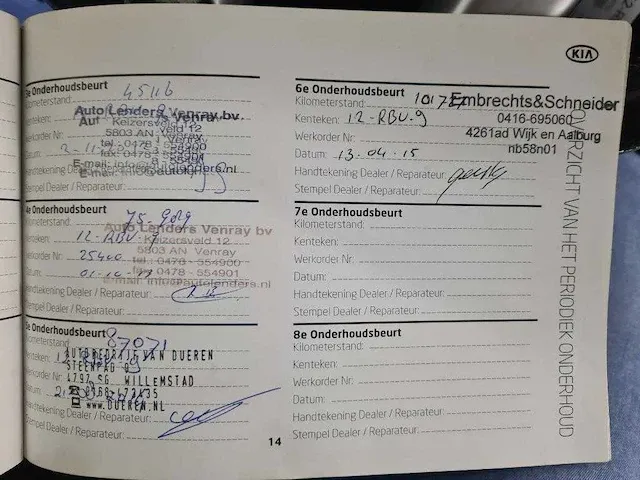 KIA
OVERZICHT VAN HET PERIODIEK ONDERHOUD
Onderhoudsbeurt
Kilometerstand: 45116
Auto Lenders Venray bv.
Keizersveld 12
5803 AN Venray
Werkorder Nr:
Datum:
Handtekening Dealer / Reparateur:
Stempel Dealer / Reparateur:
4e Onderhoudsbeurt
Kilometerstand:
Auto Lenders Venray bv
Kenteken: 12-RBV-9
Keizersveld 12
5803 AN Venray
Werkorder Nr: 25400
tel.: 0478 - 554900
fax: 0478 - 554901
Datum:
e-mail: info@autolenders.nl
Handtekening Dealer / Reparateur:
Stempel Dealer / Reparateur:
Onderhoudsbeurt
87071
AUTOBEDRIJF VAN DUEREN
STEENPAD 9
4797 SG WILLEMSTAD
WWW.DUEREN.NL
Handtekening Dealer / Reparateur:
Stempel Dealer / Reparateur:
14
6e Onderhoudsbeurt
Kilometerstand: 101727
Embrechts&Schneider
0416-695060
4261ad Wijk en Aalburg
nb58n01
Kenteken: 12-RBV-9
Werkorder Nr:
Datum: 13-04-15
Handtekening Dealer / Reparateur:
Stempel Dealer / Reparateur:
7e Onderhoudsbeurt
Kilometerstand:
Kenteken:
Werkorder Nr:
Datum:
Handtekening Dealer / Reparateur:
Stempel Dealer / Reparateur:
8e Onderhoudsbeurt
Kilometerstand:
Kenteken:
Werkorder Nr:
Datum:
Handtekening Dealer / Reparateur:
Stempel Dealer / Reparateur: